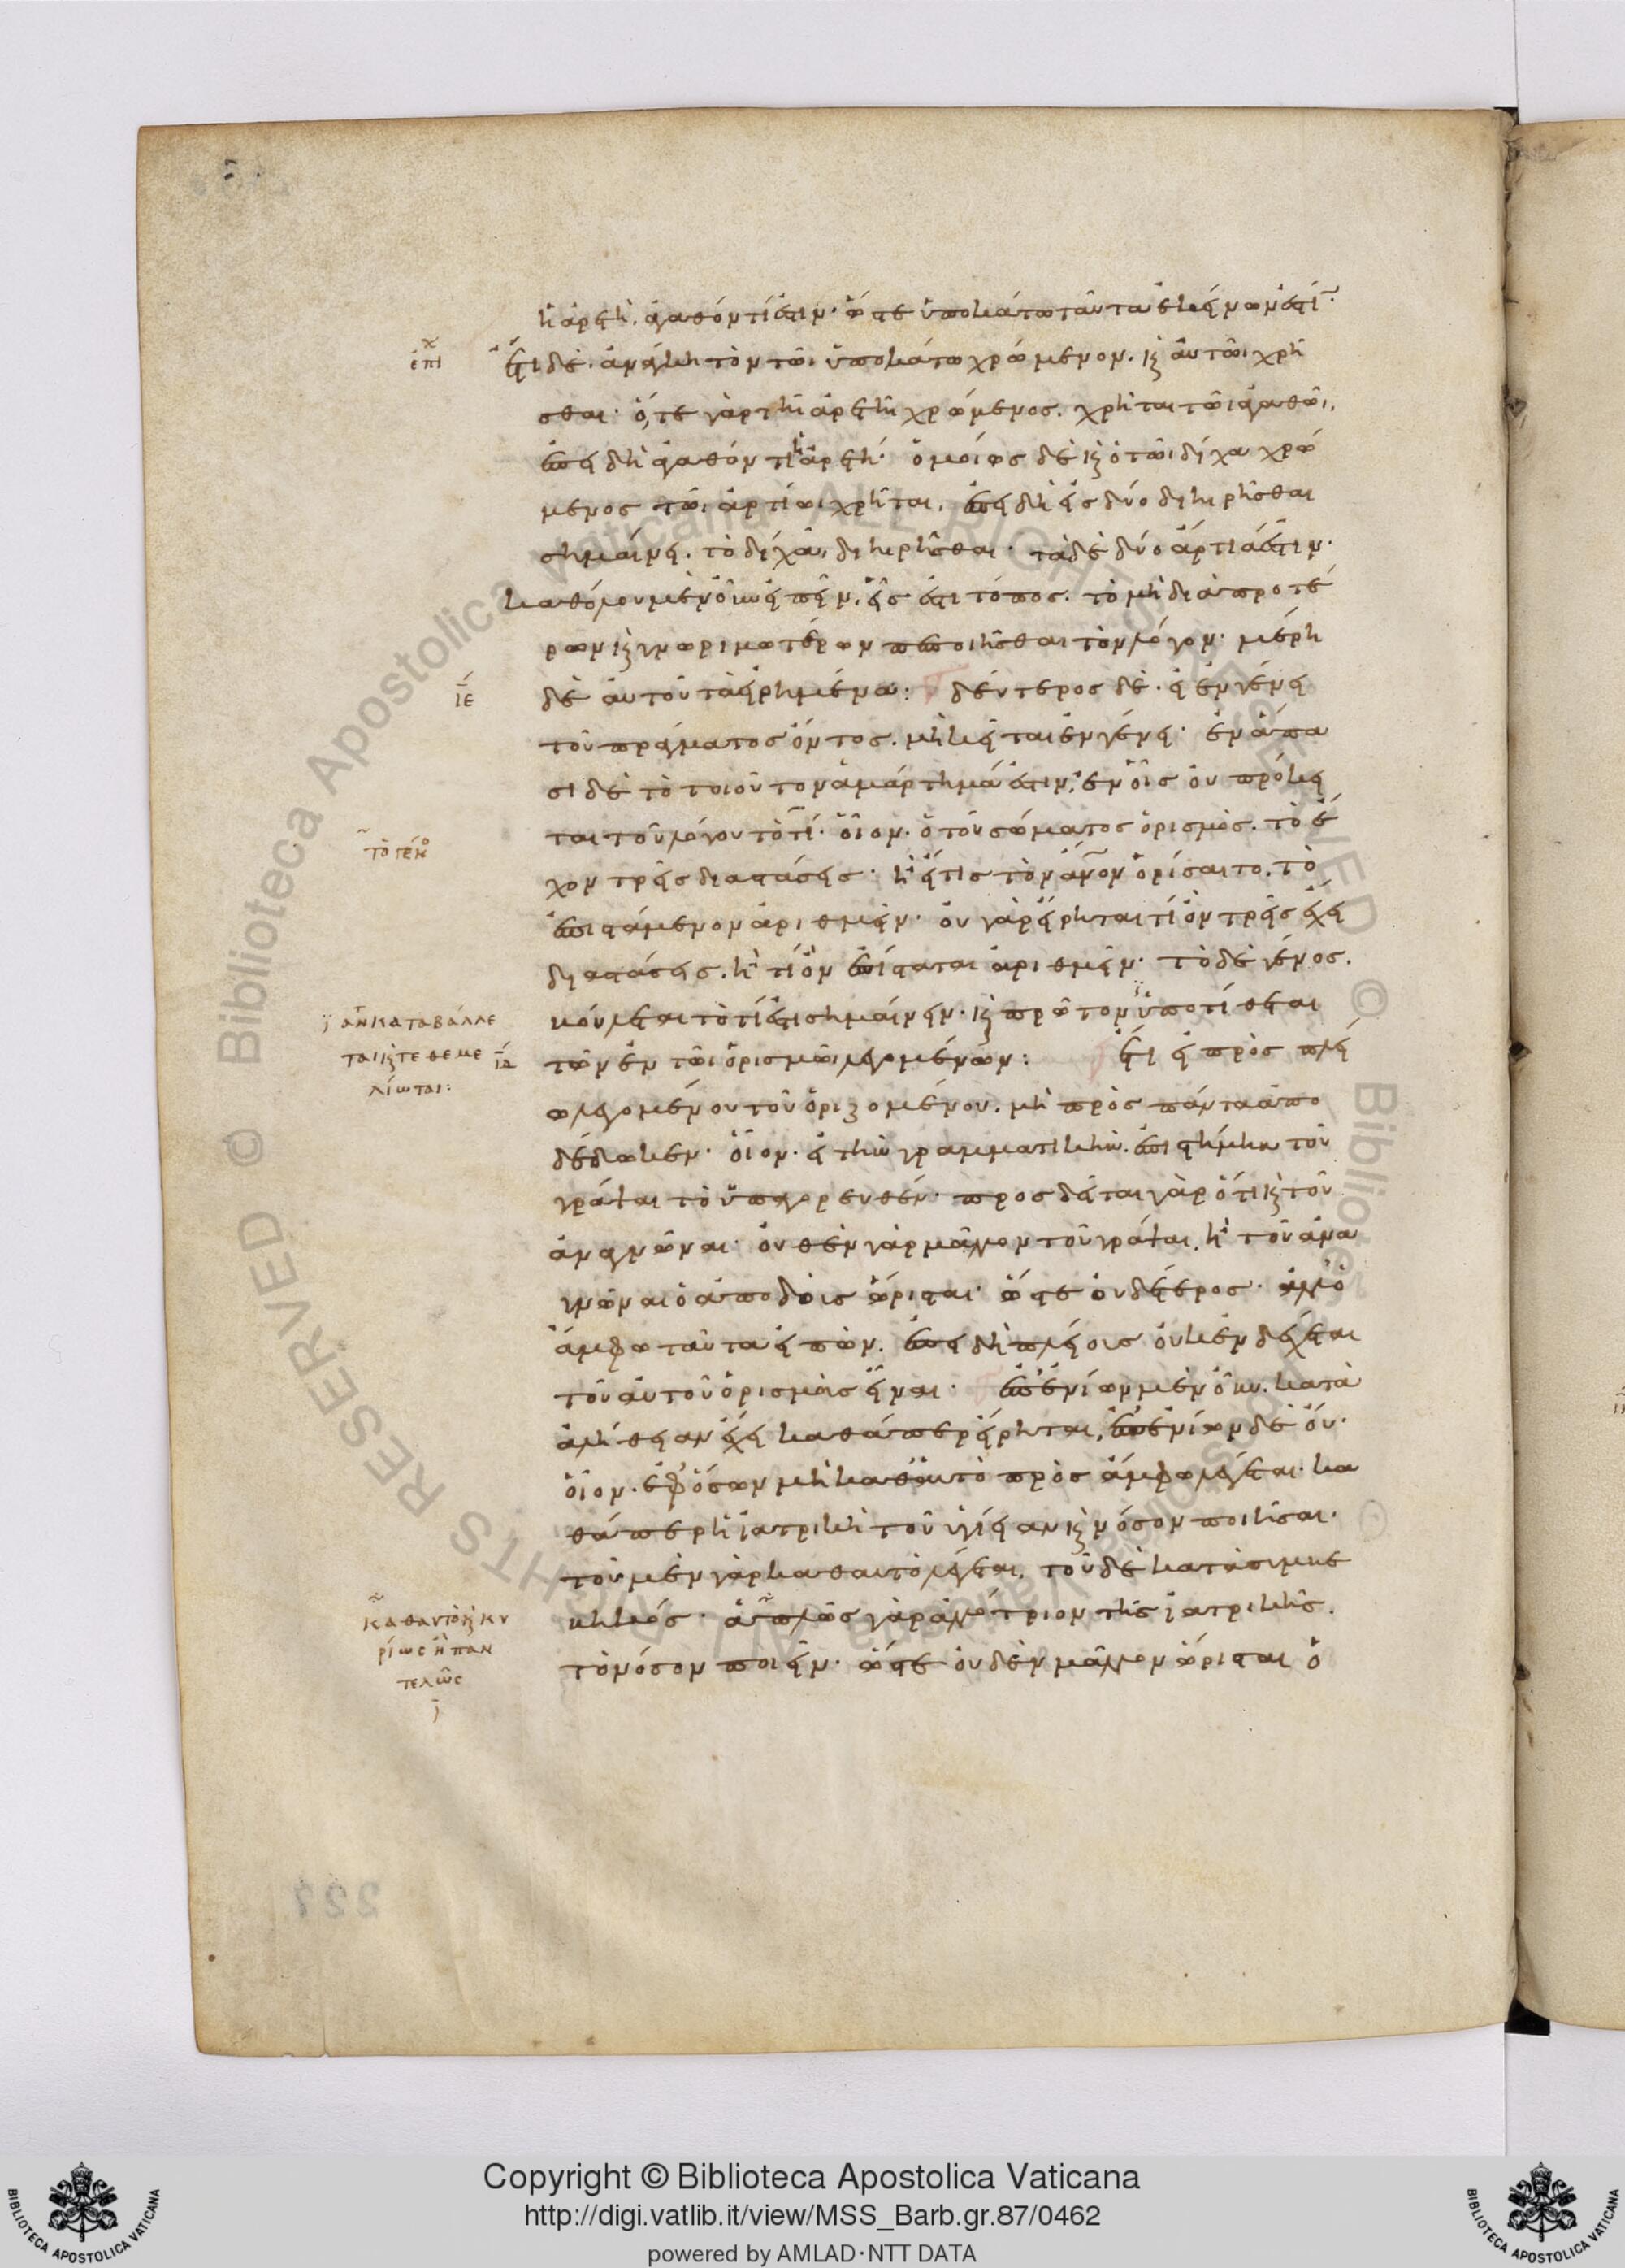 ἡ ἀρετὴ, ἀγαθόν τί ἐστιν· ὥστε ὑποκάτω ταῦτα ἐκείνων ἐστί·
ἐπὶ
ἔτι δὲ, ἀνάγκη τὸν τῶι ὑποκάτω χρώμενον, καὶ αὐτῶι χρῆ
σθαι· ὅ,τε γὰρ τῆ ἀρετῆ χρώμενος, χρῆται τῶι ἀγαθῶι,
ἐπειδὴ ἀγαθόν τι ἡ ἀρετή· ὁμοίως δὲ καὶ ὁ τῶι δίχα χρώ
μενος τῶι ἀρτίωι χρῆται, ἐπειδὴ εἰς δύο διηιρῆσθαι
σημαίνει, τὸ δίχα διηιρῆσθαι· τὰ δὲ δύο ἄρτιά ἐστιν·
καθόλου μὲν οὖν εἰπεῖν, εἷς ἐστι τόπος, τὸ μὴ διὰ προτέ
ρων καὶ γνωριμωτέρων πεποιῆσθαι τὸν λόγον· μέρη
ιε
δὲ αὐτοῦ τὰ εἰρημένα: δεύτερος δὲ, εἰ ἐν γένει
τοῦ πράγματος ὄντος, μὴ κεῖται ἐν γένει· ἐν ἅπα
σι δὲ τὸ τοιοῦτον ἁμάρτημά ἐστιν, ἐν οἷς οὐ πρόκει
ται τοῦ λόγου τὸ τί· οἷον, ὁ τοῦ σώματος ὁρισμὸς, τὸ ἔ
τὸ γέν
χον τρεῖς διαστάσεις· ἢ εἴ τις τὸν ἄνον ὁρίσαιτο, τὸ
ἐπιστάμενον ἀριθμεῖν· οὐ γὰρ εἴρηται τί ὂν τρεῖς ἔχει
διαστάσεις, ἢ τί ὂν ἐπίσταται ἀριθμεῖν· τὸ δὲ γένος,
βούλεται τὸ τί ἐστι σημαίνειν· καὶ πρῶτον ὑποτίθεται
ἀν καταβάλλε
ται καὶ τεθεμε
λίωται:
τῶν ἐν τῶι ὁρισμῶι λεγομένων: ἔτι εἰ πρὸς πλεί
ω λεγομένου τοῦ ὁριζομένου, μὴ πρὸς πάντα ἀπο
δέδωκεν· οἷον, εἰ τὴν γραμματικὴν, ἐπιστήμην τοῦ
γράψαι τὸ ὑπαγορευθέν· προσδεῖται γὰρ ὅτι καὶ τοῦ
ἀναγνῶναι· οὐθὲν γὰρ μᾶλλον τοῦ γράψαι, ἢ τοῦ ἀνα
γνῶναι ὁ ἀποδοὺς ὥρισται· ὥστε οὐδέτερος· ἀλλ' ὁ
ἄμφω ταῦτα εἰπὼν, ἐπειδὴ πλείους οὐκ ἐνδέχεται
τοῦ αὐτοῦ ὁρισμοὺς εἶναι· ἐπ' ἐνίων μὲν οὖν, κατὰ
ἀλήθειαν ἔχει καθάπερ εἴρηται, ἐπ' ἐνίων δὲ οὔ·
οἷον, ἐφ' ὅσων μὴ καθ' αὑτὸ πρὸς ἄμφω λέγεται· κα
θάπερ ἡ ἰατρικὴ τοῦ ὑγίειαν καὶ νόσον ποιῆσαι·
τοῦ μὲν γὰρ καθ' αὑτὸ λέγεται, τοῦ δὲ κατὰ συμβε
βηκός· ἁπλῶς γὰρ ἀλλότριον τῆς ἰατρικῆς,
καθαυτὸ καὶ κυ
ρίως ἢ παν
τελῶς
τὸ νόσον ποιεῖν· ὥστε οὐδὲν μᾶλλον ὥρισται ὁ
227
Copyright © Biblioteca Apostolica Vaticana
http://digi.vatlib.it/view/MSS_Barb.gr.87/0462
powered by AMLAD·NTT DATA